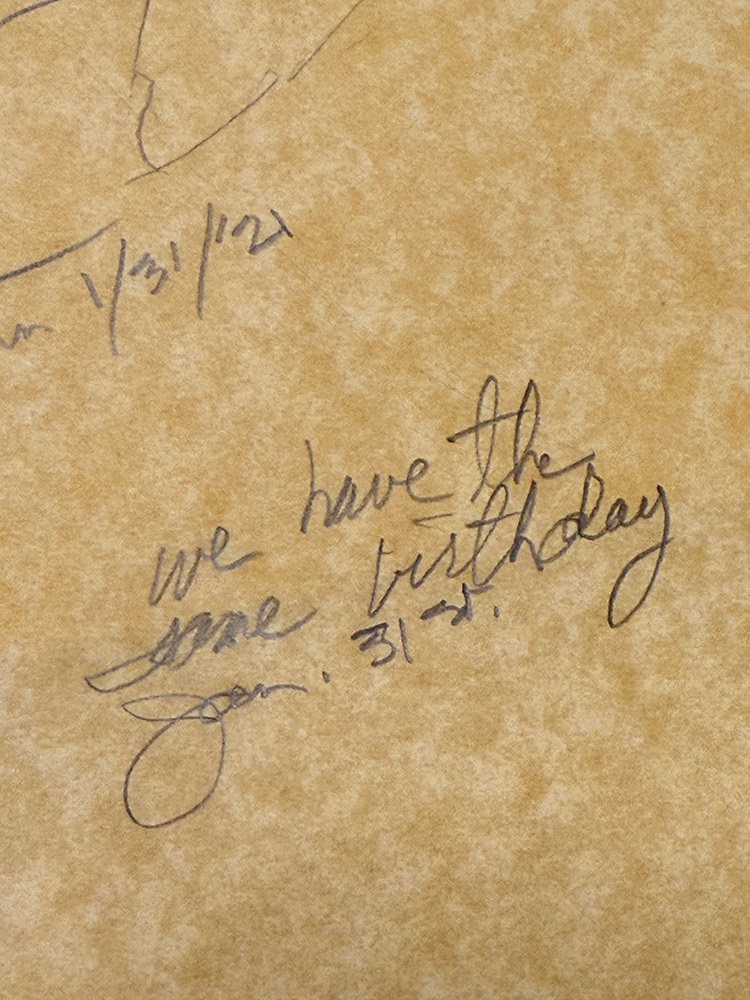 1/31/'21
we have the
same birthday
Jan. 31st.